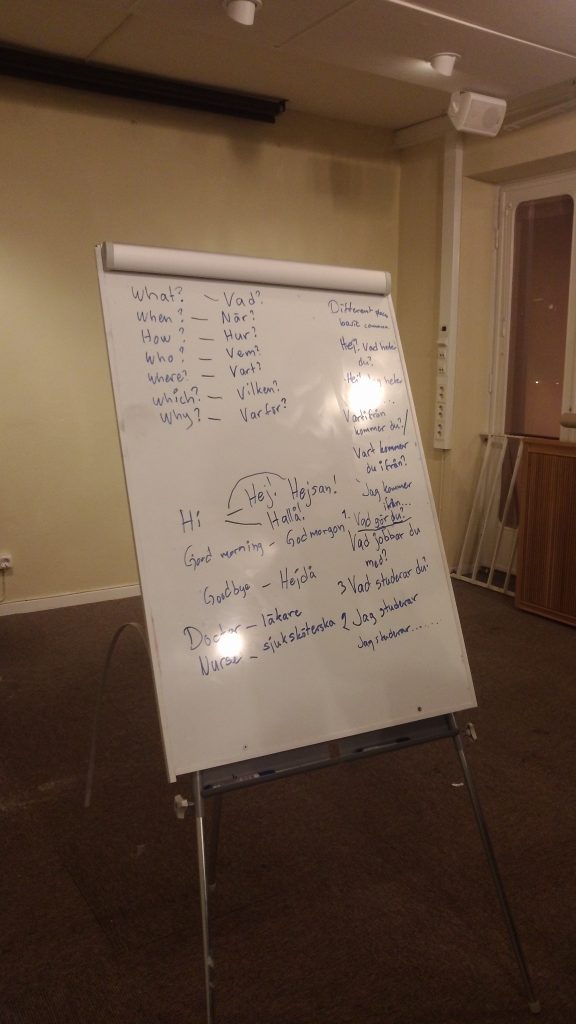 What? – Vad?
When? – När?
How? – Hur?
Who? – Vem?
where? – Vart?
which? – Vilken?
Why? – Varför?
Hi – Hej! Hejsan!
Hallå!
Good morning – Godmorgon
Goodbye – Hejdå
Doctor – läkare
Nurse – sjuksköterska
Different
basic commun
Hej! Vad heter
du?
Hej! Jag heter
....
Vartifrån
kommer du?/
Vart kommer
du ifrån?
Jag kommer
ifrån...
1. Vad gör du?
Vad jobbar du
med?
3 Vad studerar du?
2 Jag studerar
Jag studerar.......